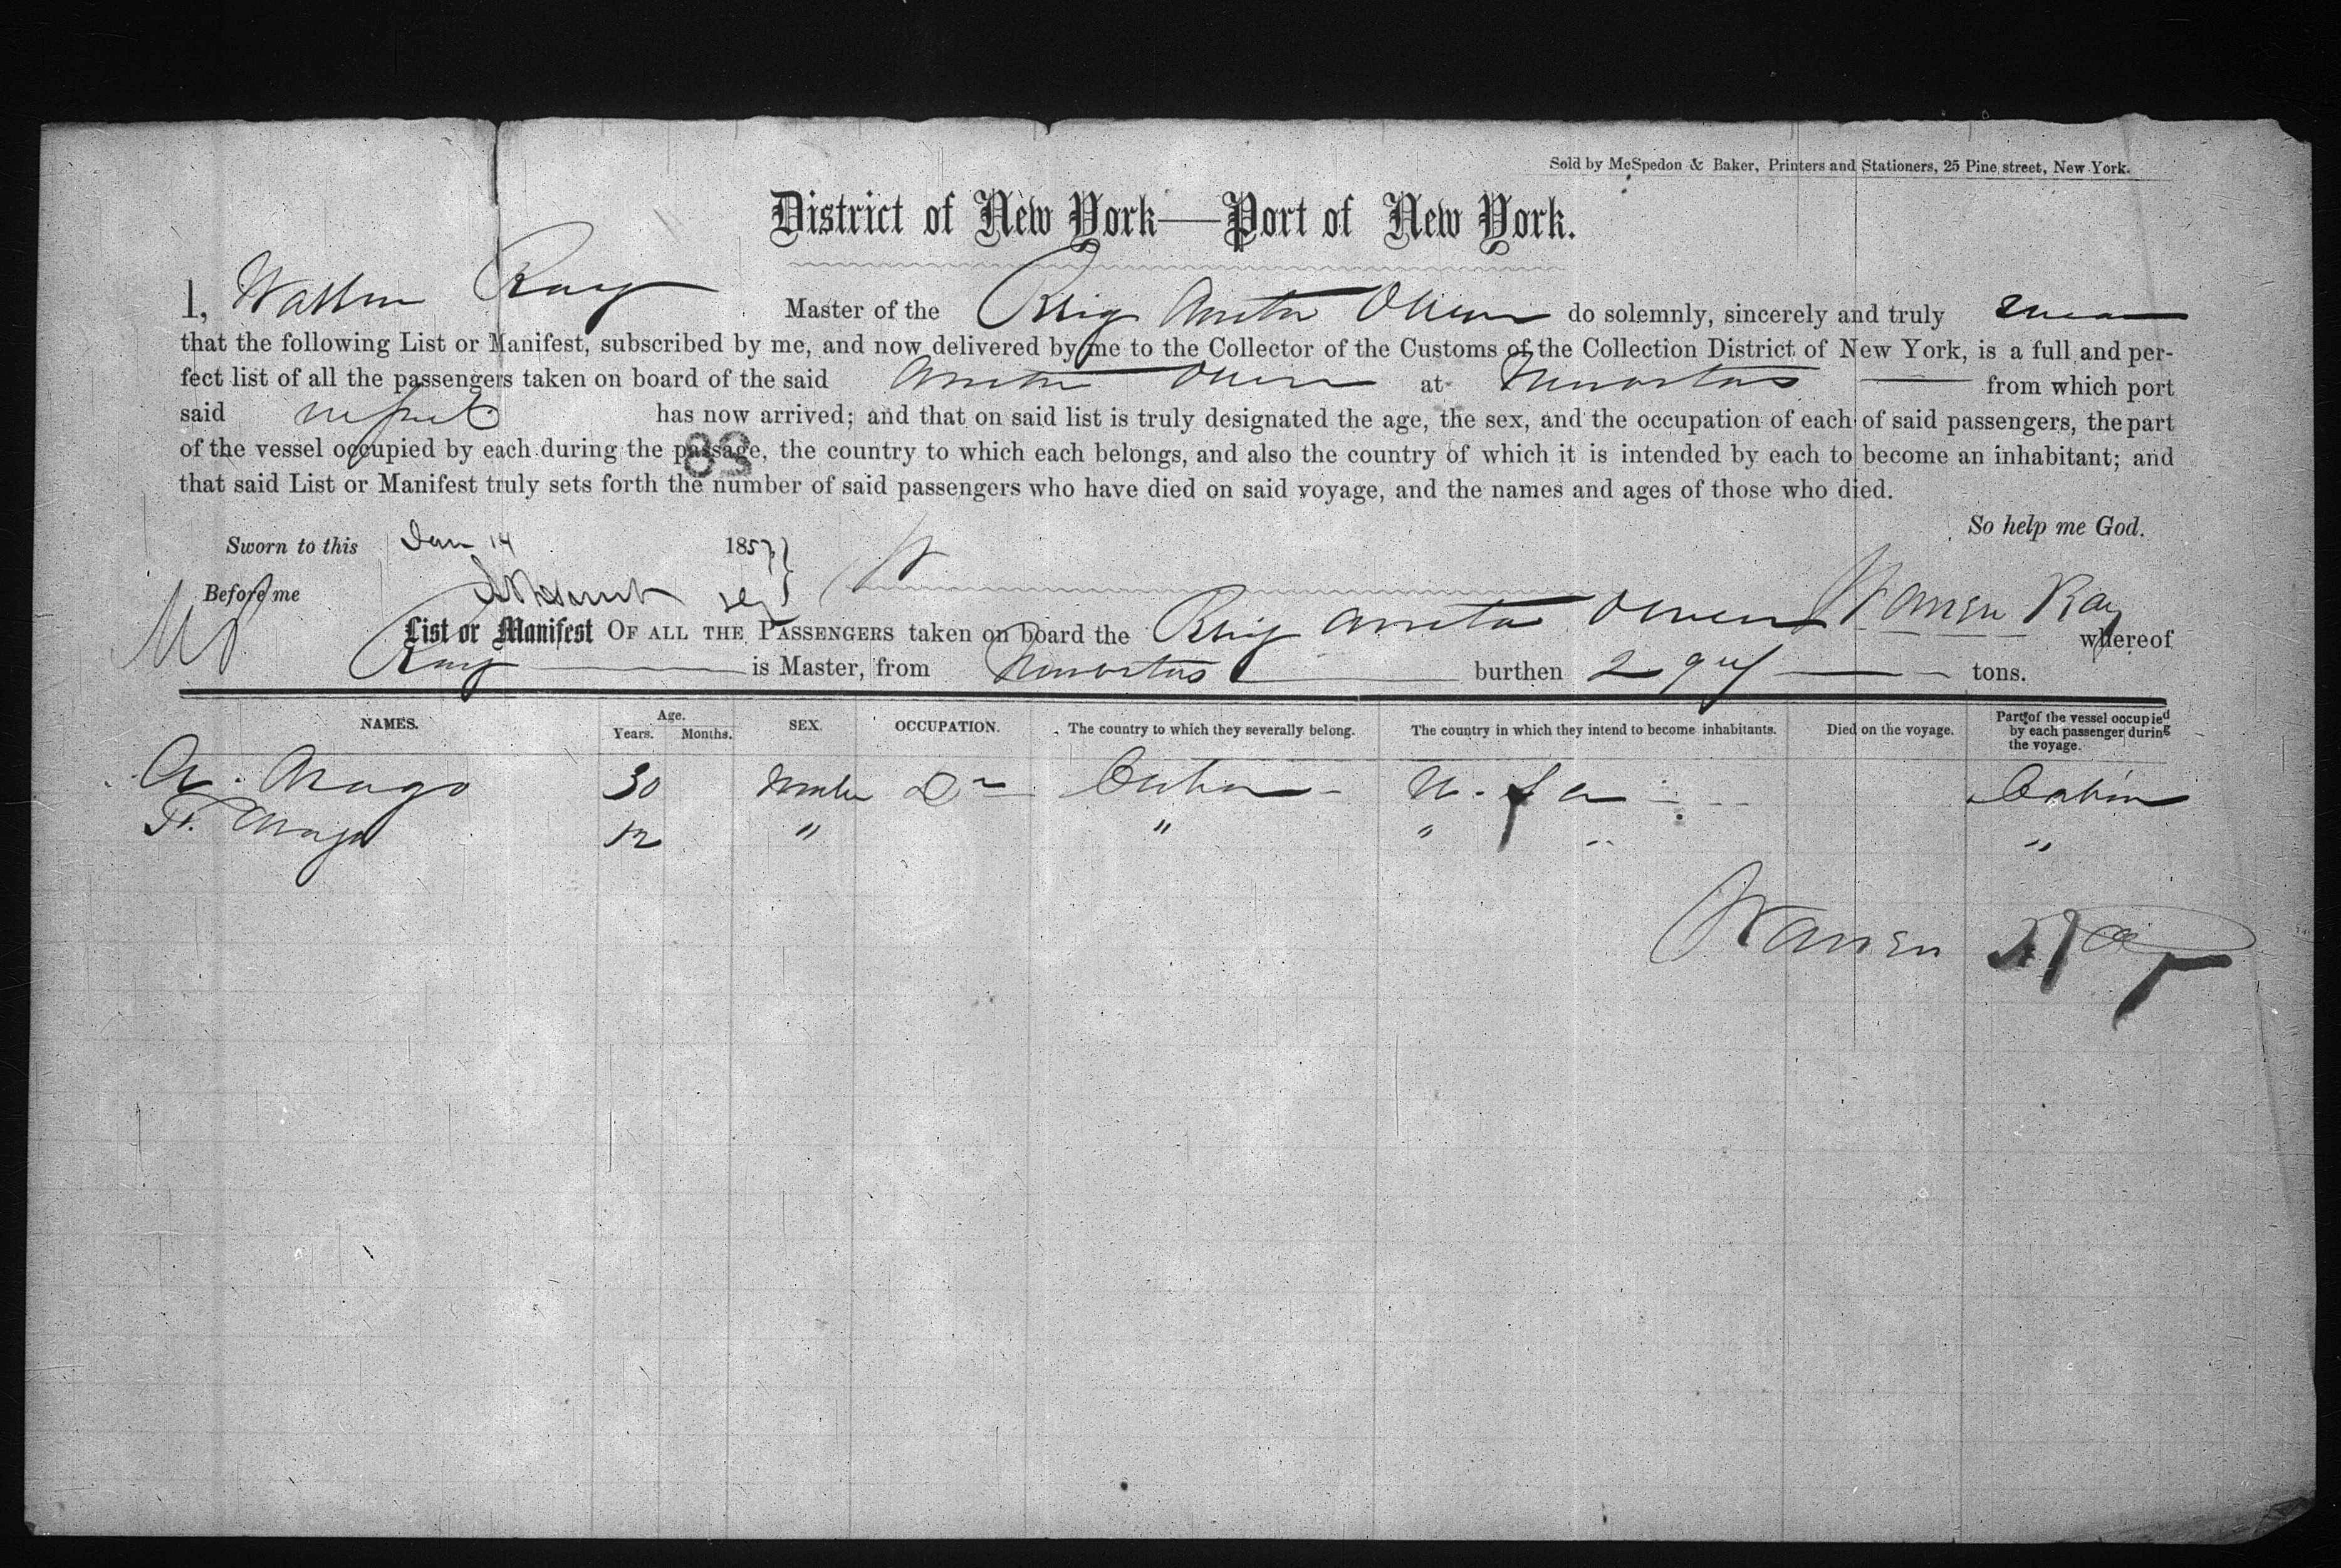 Sold by McSpedon & Baker, Printers and Stationers, 25 Pine street, New York.
District of New York—Port of New York.
I, Warren Ray Master of the Brig Anita Owen do solemnly, sincerely and truly swear
that the following List or Manifest, subscribed by me, and now delivered by me to the Collector of the Customs of the Collection District of New York, is a full and per-
fect list of all the passengers taken on board of the said Anita Owen at Nuevitas from which port
said vessel has now arrived; and that on said list is truly designated the age, the sex, and the occupation of each of said passengers, the part
of the vessel occupied by each during the passage, the country to which each belongs, and also the country of which it is intended by each to become an inhabitant; and
83
that said List or Manifest truly sets forth the number of said passengers who have died on said voyage, and the names and ages of those who died.
So help me God.
Sworn to this Jan 14 1857
Before me
Warren Ray
List or Manifest OF ALL THE PASSENGERS taken on board the Brig Anita Owen whereof
Ray is Master, from Nuevitas burthen tons.
NAMES. Age. Years. Months. SEX. OCCUPATION. The country to which they severally belong. The country in which they intend to become inhabitants. Died on the voyage. Part of the vessel occupied by each passenger during the voyage.
A. Arago 30 Male Dr Cuba U. S a Cabin
F. Arago 12 " " " " "
Warren Ray